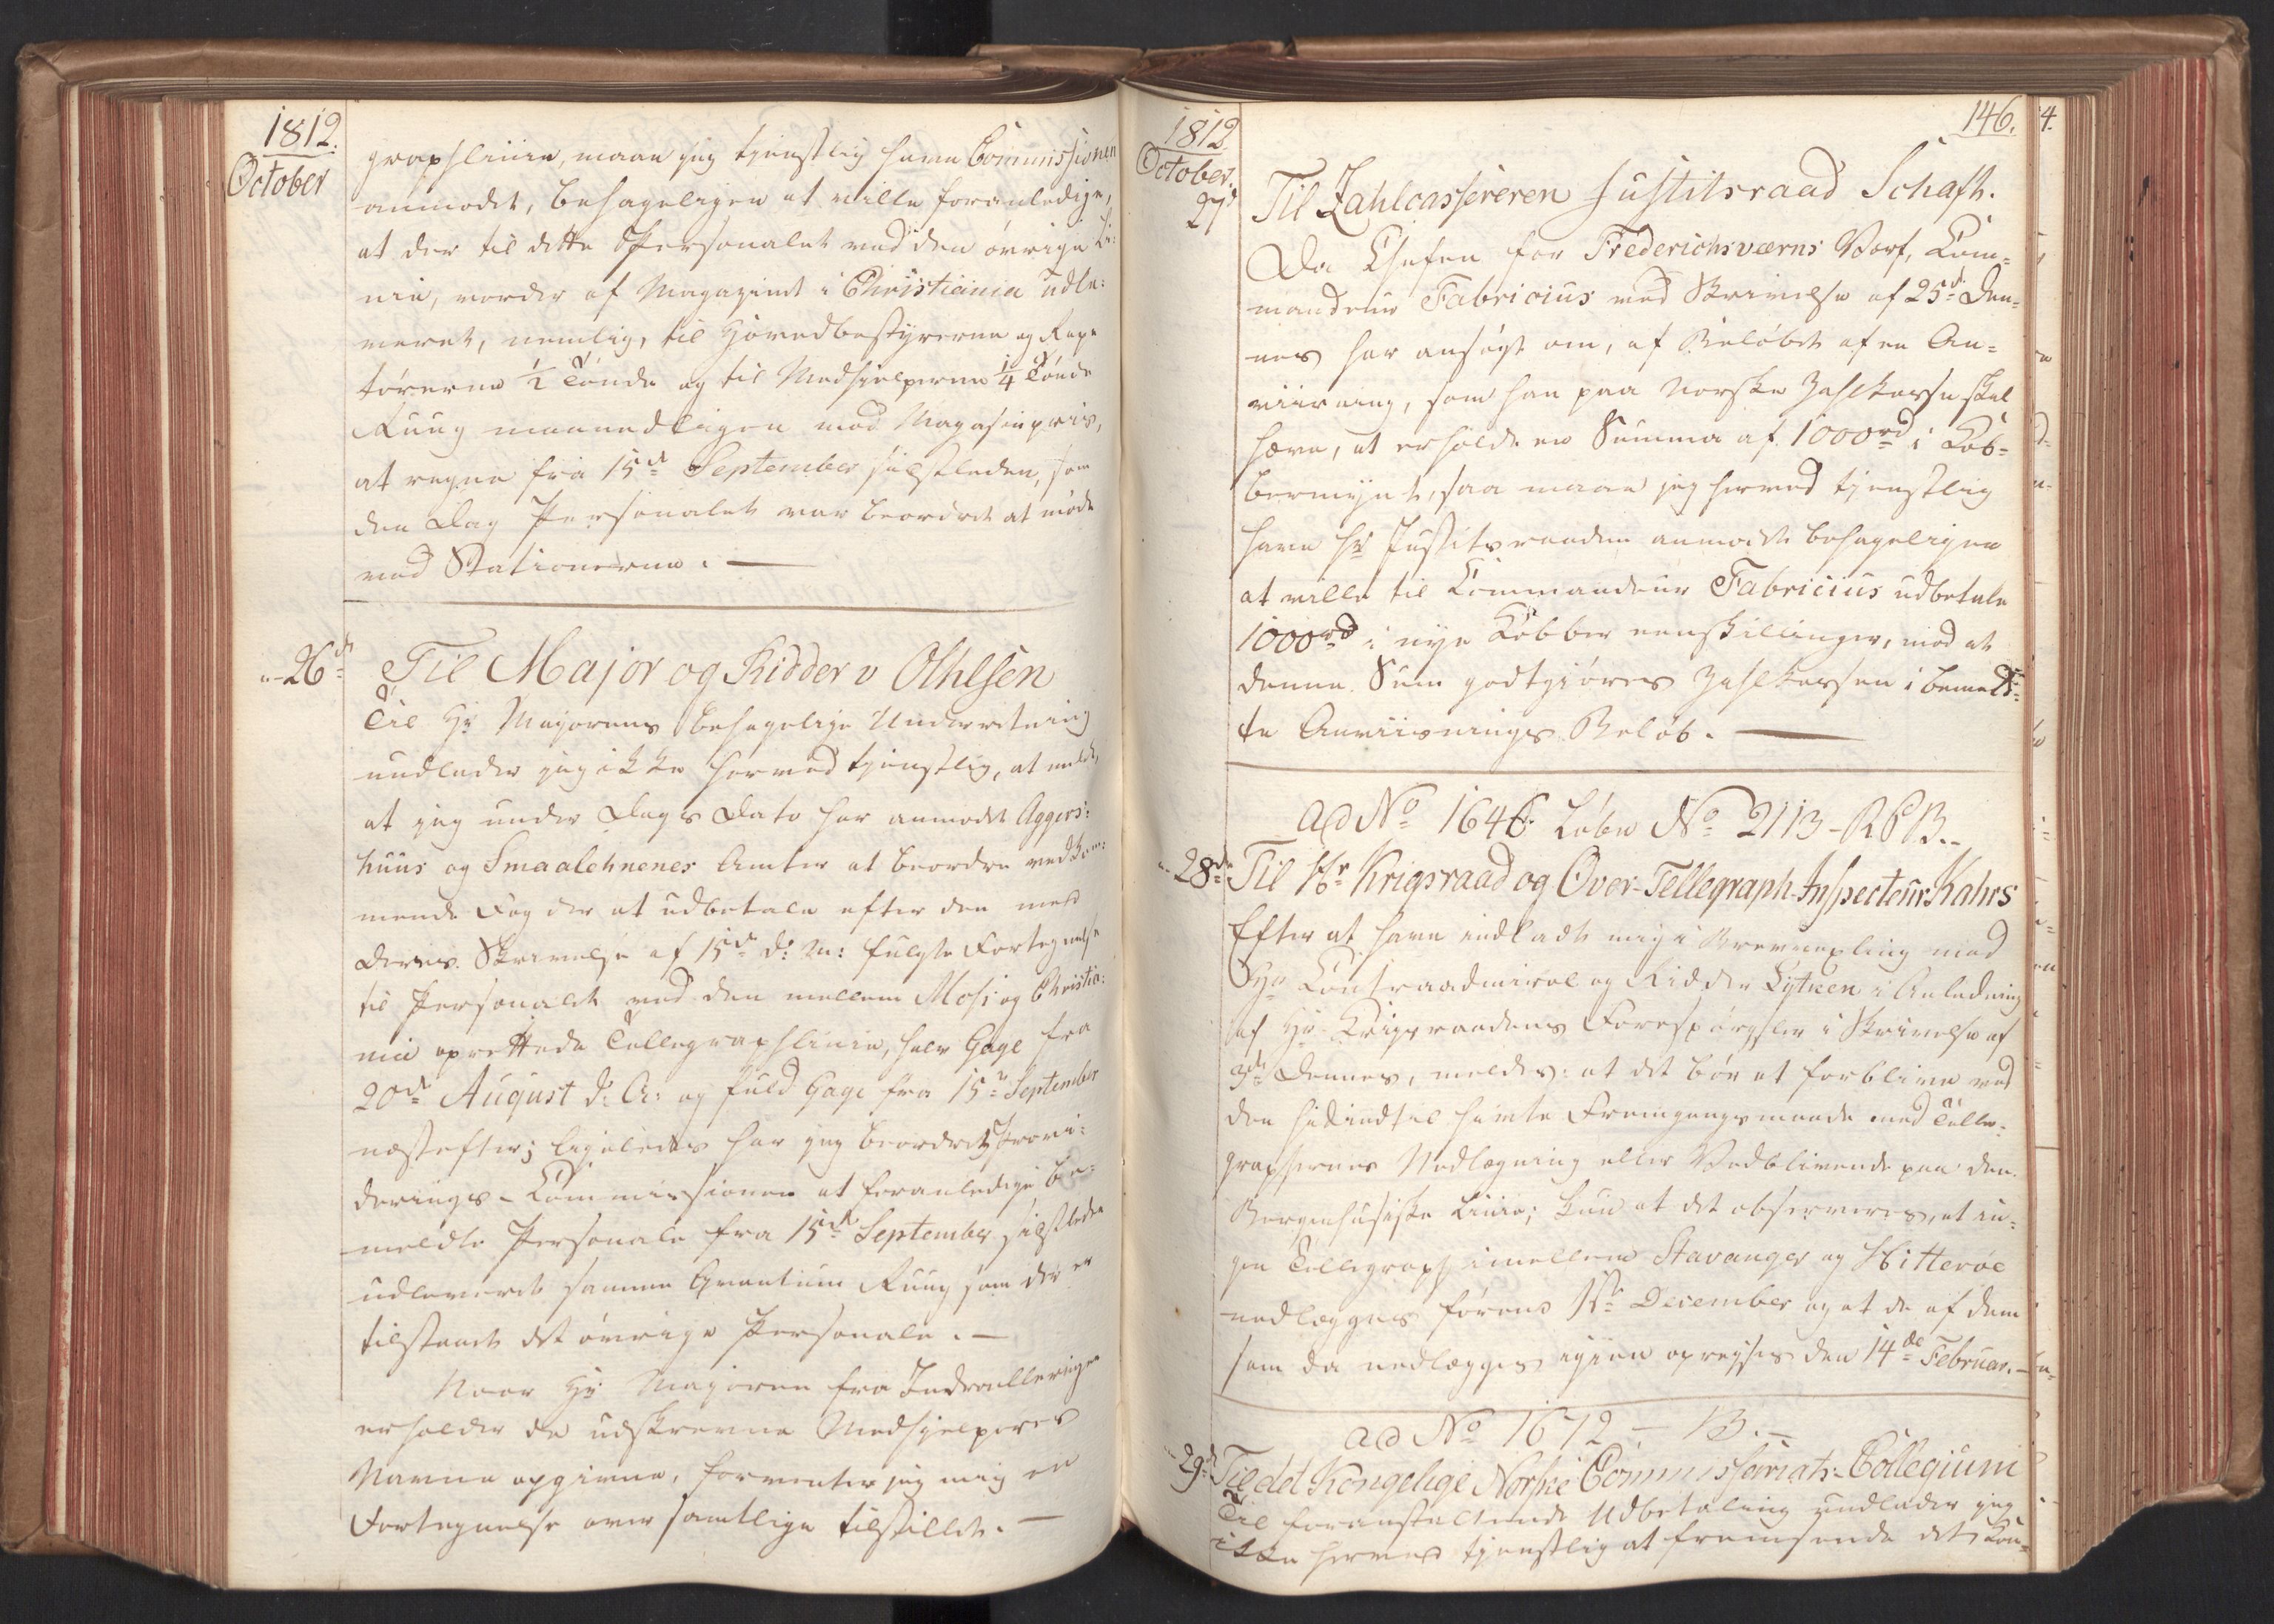 1812.
October
graphliinie, maae jeg tjenstlig have Commissionen
anmodet, behageligen at ville foranledige,
at der til dette Personalet ved den øvrige Li:
nie, vorder af Magazinet i Christiania udle:
veret, nemlig, til Hovedbestyrerne og Repe
törerne 1/2 Tønde og til Medhjelperne 1/4 Tønde
Ruug maanedligen mod Magasinpris,
at regne fra 15de September sidstleden, som
den Dag Personalet var beordret at møde
ved Stationerne. —
"-26de
Til Major og Ridder v Othlsen
Til Hr Majorens behagelige Underretning
undlader jeg ikke herved tjenstlig, at melde,
at jeg under Dags Dato har anmodet Aggers:
huus og Smaalehnenes Amter at beordre vedkom:
mende Fogder at udbetale efter den med
Deres Skrivelse af 15de d: M: fulgte Fortegnelse
til Personalet ved den mellem Moss og Christia:
nia oprettede Tellegraphlinie, halv Gage fra
20de August d: A: og fuld Gage fra 15de September
næstefter; ligeledes har jeg beordret Provi:
derings-Commissionen at foranledige be-
meldte Personale fra 15de September sidstleden
udleveret samme Qvantum Ruug som der er
tilstaaet det øvrige Personale. —
Naar Hr Majoren fra Indroulleringen
erholder de udskrevne Medhjelperes
Navne opgivne, forventer jeg mig en
Fortegnelse over samtlige tilstillet. —
146.
4.
1812
October.
27d
Til Zahlcassereren Justitsraad Schaft.
Da Chefen for Frederichsværns Værf, Com-
mandeur Fabricius med Skrivelse af 25de Den-
nes har ansøgt om, af Beløbet af en An-
viisning, som han paa Norske Zahlkasse skal
hæve, at erholde en Summa af 1000rd i Kob-
bermynt, saa maae jeg herved tjenstlig
have Hr Justitsraaden anmodet behageligen
at ville til Commandeur Fabricius udbetale
1000rd i nye Kobber eenskillinger, mod at
denne Sum godtgiøres Zahlkassen i bemeld-
te Anviisnings Beløb. —
ad No 1646. Løbe No 2113 - RPB.-
"-28de
Til Hr Krigsraad og Over-Tellegraph-Inspecteur Kahrs
Efter at have indladt mig i Brevvexling med
Hr Contraadmiral og Ridder Lütken i Anledning
af Hr Krigsraadens Forespørgsler i Skrivelse af
3de Dennes, meldes: at det bør at forblive ved
den hidindtil havte Fremgangsmaade med Telle-
graphernes Nedlægning eller Vedblivende paa den
Bergenhusiske Linie; kun at det observeres, at in-
gen Tellegraph imellem Stavanger og Hitterøe
nedlægges førend 1ste December og at de af dem
som da nedlægges igien opreises den 14de Februar. —
ad No 1672 - 13. -
"29d
Til det Kongelige Norske Commissariats-Collegium
Til foranstaltende Udbetaling undlader jeg
ikke herved tjenstlig at fremsende det Kon-